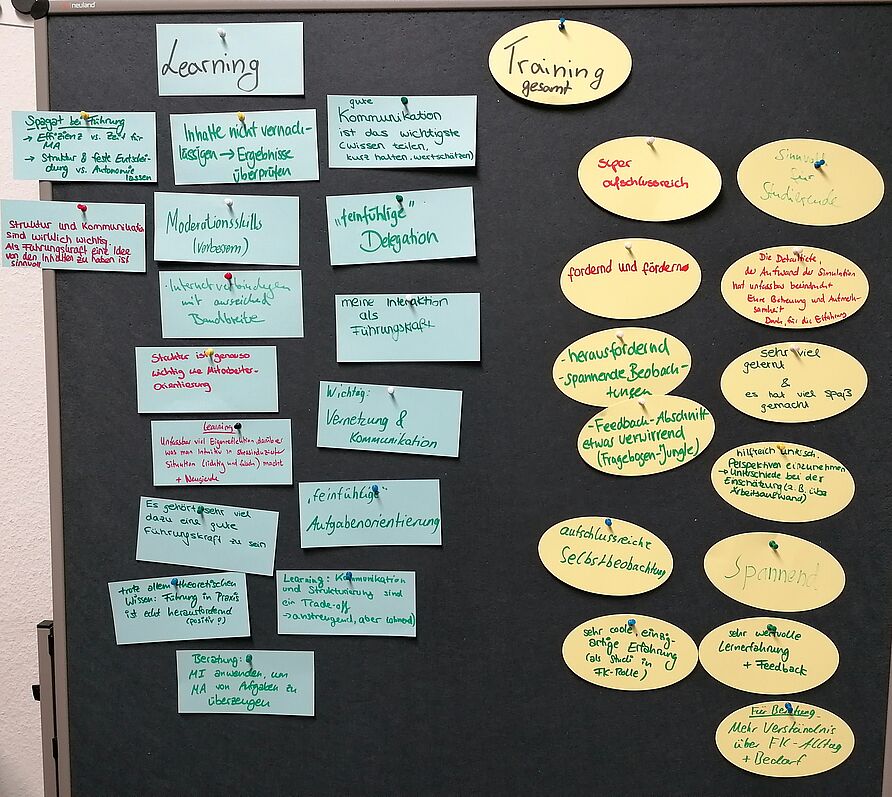 neuland
Learning
Spagat bei Führung
→ Effizienz vs. Zeit für
MA
→ Struktur & feste Entschei-
dung vs. Autonomie
lassen
Inhalte nicht vernach-
lässigen → Ergebnisse
überprüfen
gute
Kommunikation
ist das wichtigste
(wissen teilen,
kurz halten, wertschätzen)
Struktur und Kommunikation
sind wirklich wichtig.
Als Führungskraft eine Idee
von den Inhalten zu haben ist
sinnvoll
Moderationsskills
(verbessern)
"feinfühlige"
Delegation
Internetverbindungen
mit ausreichend
Bandbreite
meine Interaktion
als
Führungskraft
Struktur ist genauso
wichtig wie Mitarbeiter-
orientierung
Wichtig:
Vernetzung &
Kommunikation
Learning
Unfassbar viel Eigenreflektion darüber
was man intuitiv in stressinduzierter
Situation (richtig und falsch) macht
+ Neugierde
"feinfühlige"
Aufgabenorientierung
Es gehört sehr viel
dazu eine gute
Führungskraft zu sein
trotz allem theoretischen
Wissen: Führung in Praxis
ist echt herausfordernd
(positiv)
Learning: Kommunikation
und Strukturierung sind
ein Trade-off
→ anstrengend, aber lohnend)
Beratung:
MI anwenden, um
MA von Aufgaben zu
überzeugen
Training
gesamt
super
aufschlussreich
Sinnvoll
für
Studierende
fordernd und fördernd
Die Detailtiefe,
der Aufwand der Simulation
hat unfassbar beeindruckt
Eure Betreuung und Aufmerk-
samkeit
Dank, für die Erfahrung
- herausfordernd
- spannende Beobach-
tungen
sehr viel
gelernt
&
es hat viel Spaß
gemacht
- Feedback-Abschnitt
etwas verwirrend
(Fragebogen-Jungle)
hilfreich untersch.
Perspektiven einzunehmen
→ Unterschiede bei der
Einschätzung (z.B. über
Arbeitsaufwand)
aufschlussreiche
Selbstbeobachtung
Spannend
sehr coole, einzig-
artige Erfahrung
(als Studi in
FK-Rolle)
sehr wertvolle
Lernerfahrung
+ Feedback
Für Beratung
Mehr Verständnis
über FK-Alltag
+ Bedarf